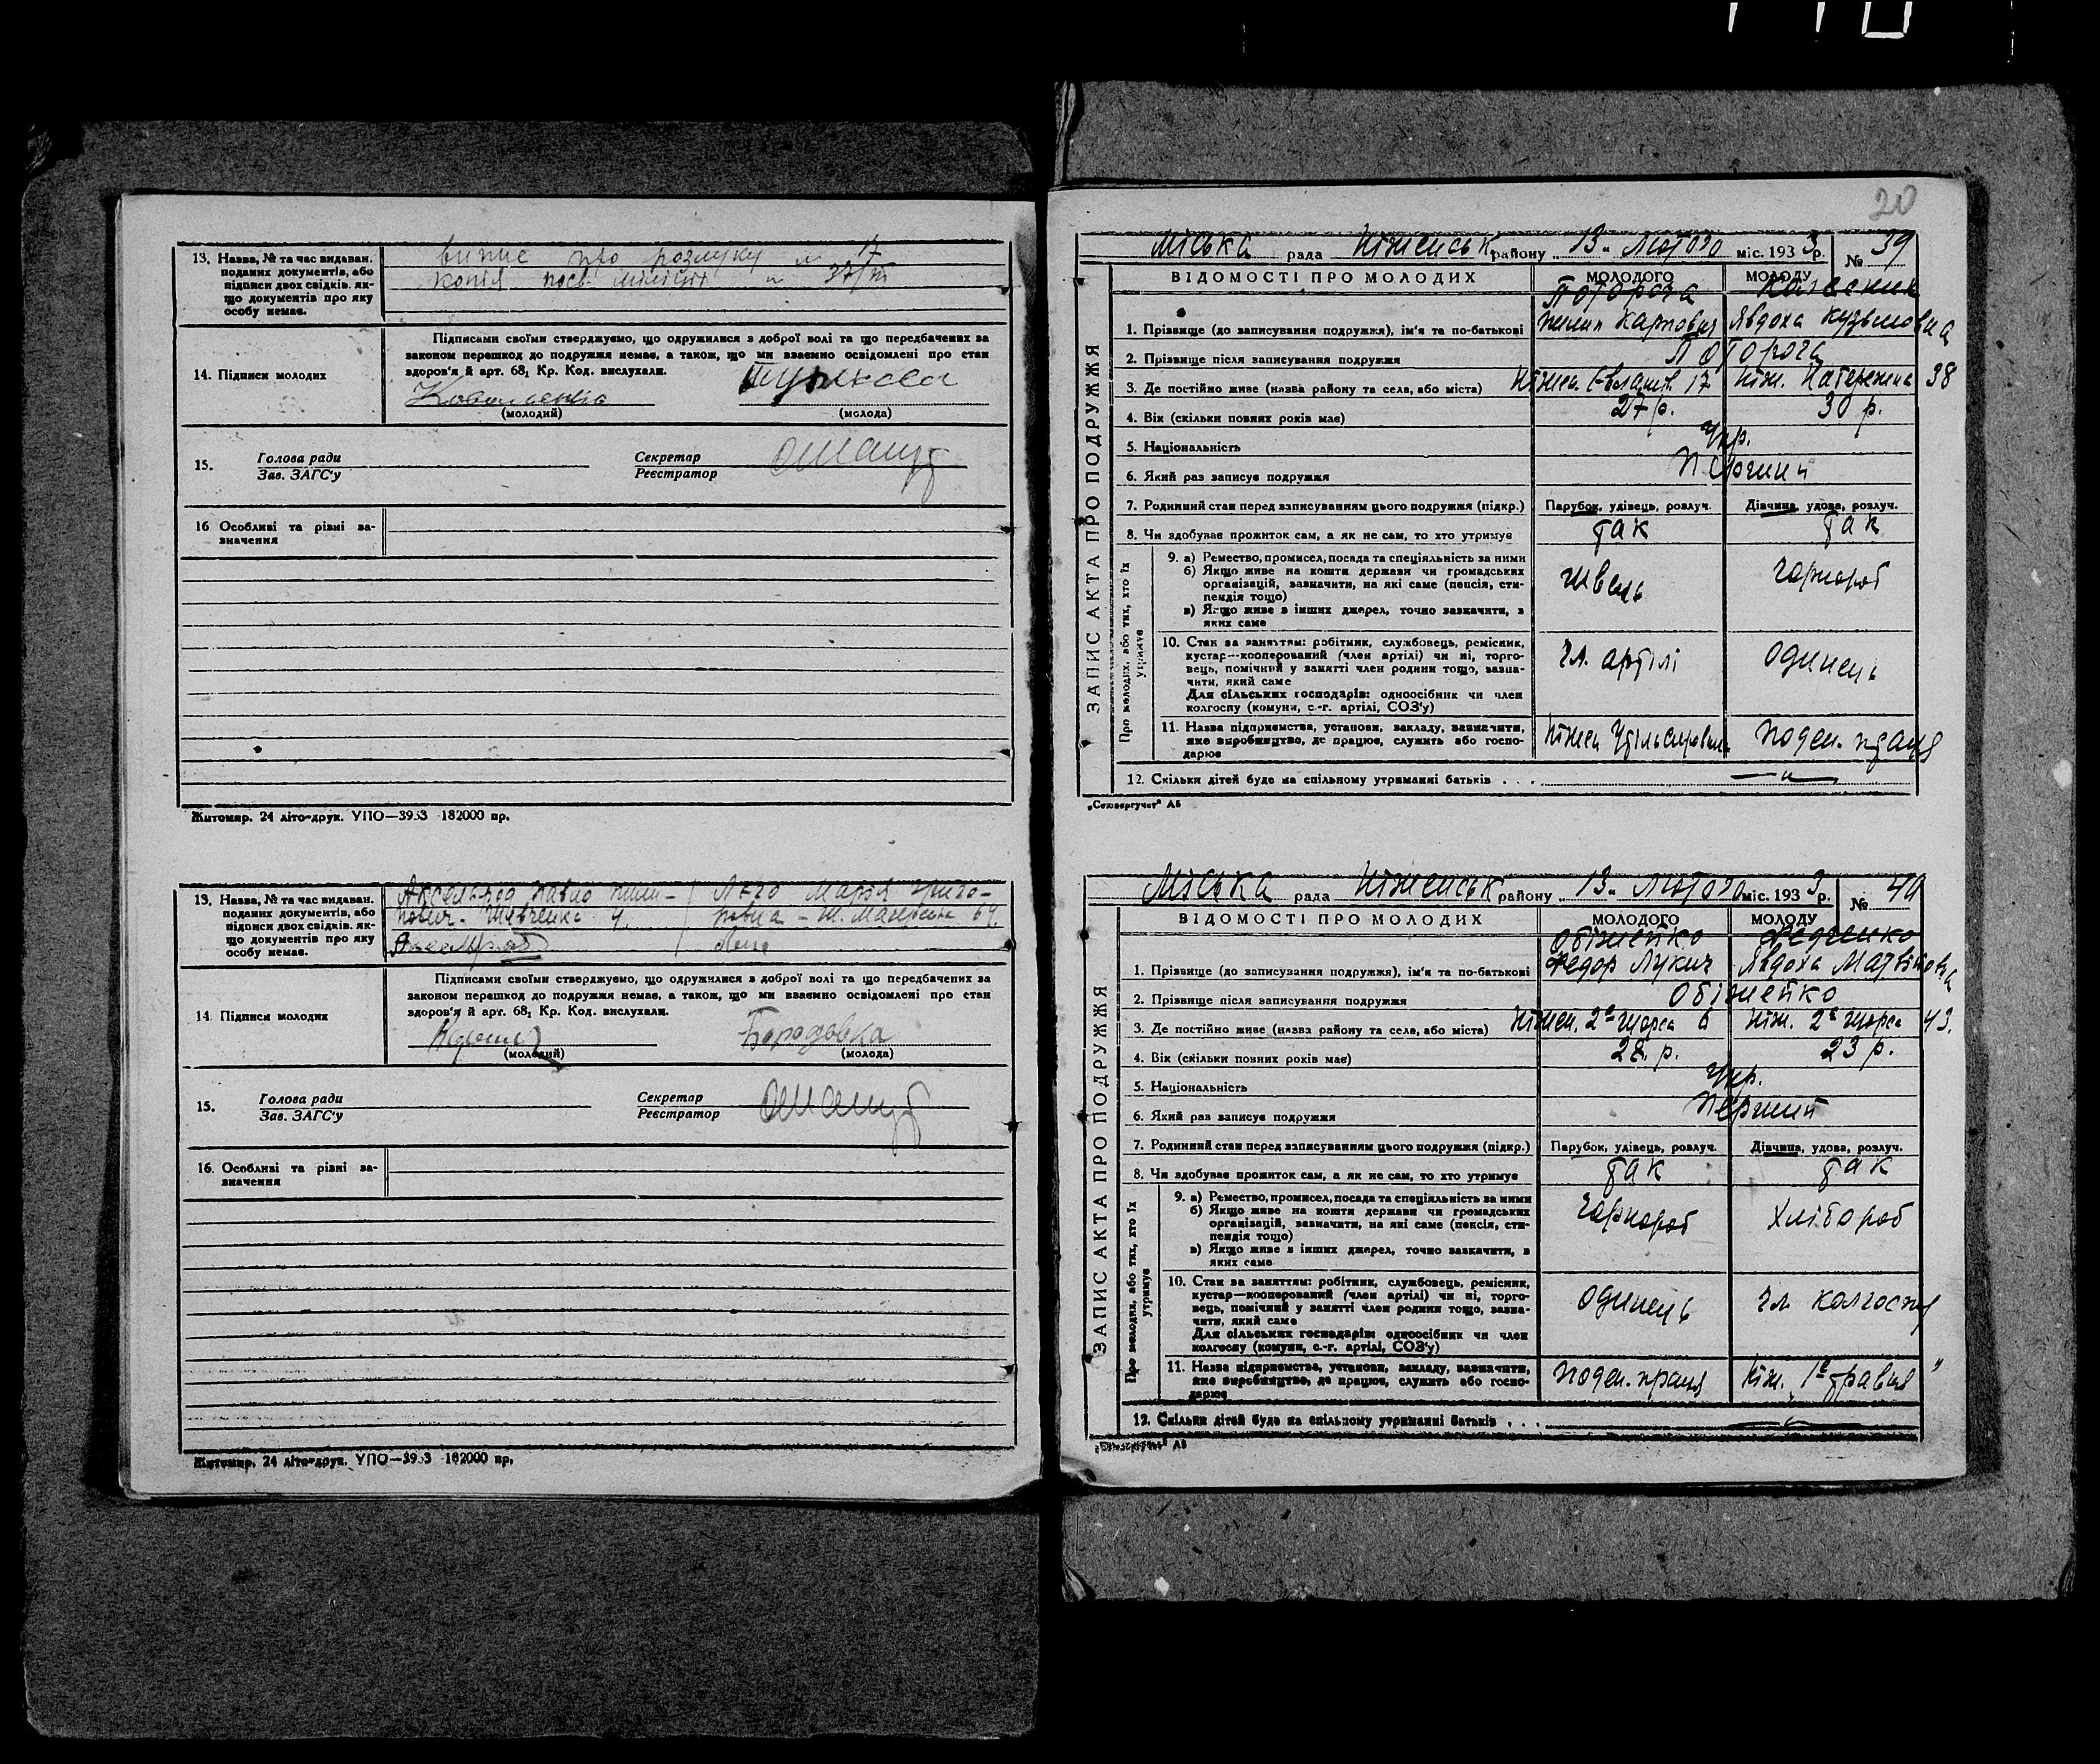 13. Назва, № та час видаван. поданих документів, або підписи двох свідків. якщо документів про яку особу немає.
випис про розлуку № 17
копія посв. міліції № 37/III
14. Підписи молодих
Підписами своїми стверджуємо, що одружилися з доброї волі та що передбачених за
законом перешкод до подружжя немає, а також, що ми взаємно освідомлені про стан
здоров'я й арт. 68, Кр. Код. вислухали.
(молодий) (молода)
15. Голова ради Секретар
Зав. ЗАГС'у Реєстратор
16 Особливі та різні зазначення
Житомир. 24 літо-друк. УПО—3953 182000 пр.
13. Назва, № та час видаван. поданих документів, або підписи двох свідків. якщо документів про яку особу немає.
Аксельрод Павло Пили- Лего Марія Григо-
пович - Шевченка 4. ровна - 64.
Аксельрод Лего
14. Підписи молодих
Підписами своїми стверджуємо, що одружилися з доброї волі та що передбачених за
законом перешкод до подружжя немає, а також, що ми взаємно освідомлені про стан
здоров'я й арт. 68, Кр. Код. вислухали.
Бородавка
(молодий) (молода)
15. Голова ради Секретар
Зав. ЗАГС'у Реєстратор
16. Особливі та різні зазначення
Житомир. 24 літо-друк. УПО—3953 182000 пр.
20
Міська рада Ніженськ району „13" Лютого міс. 1933 р. № 39
ЗАПИС АКТА ПРО ПОДРУЖЖЯ
ВІДОМОСТІ ПРО МОЛОДИХ МОЛОДОГО МОЛОДУ
Потороча Колесник
1. Прізвище (до записування подружжя), ім'я та по-батькові Пилип Карпович Явдоха Кузьмовна
2. Прізвище після записування подружжя Потороча
3. Де постійно живе (назва району та села, або міста) Ніжен. 17 Ніж. Набережна 38
4. Вік (скільки повних років має) 27 р. 30 р.
5. Національність Укр.
6. Який раз записує подружжя Перший
7. Родинний стан перед записуванням цього подружжя (підкр.) Парубок, удівець, розлуч. Дівчина, удова, розлуч.
8. Чи здобуває прожиток сам, а як не сам, то хто утримує так так
Про молодих, або тих, хто їх утримує
9. а) Ремество, промисел, посада та спеціяльність за ними
б) Якщо живе на кошти держави чи громадських
організацій, зазначити, на які саме (пенсія, сти-
пендія тощо)
в) Якщо живе з інших джерел, точно зазначити, з
яких саме
швець чорнороб
10. Стан за заняттям: робітник, службовець, ремісник,
кустар—кооперований (член артілі) чи ні, торго-
вець, помічний у занятті член родини тощо, зазна-
чити, який саме
Для сільських господарів: одноосібник чи член
колгоспу (комуни, с.-г. артілі, СОЗ'у)
чл. артілі одинець
11. Назва підприємства, установи, закладу, зазначити,
яке виробництво, де працює, служить або госпо-
дарює
Ніжен поден. праця
12. Скільки дітей буде на спільному утриманні батьків . . . — " —
„Союзоргучет" А5
Міська рада Ніженськ району „13" Лютого міс. 1933 р. № 40
ЗАПИС АКТА ПРО ПОДРУЖЖЯ
ВІДОМОСТІ ПРО МОЛОДИХ МОЛОДОГО МОЛОДУ
Обіжейко Федченко
1. Прізвище (до записування подружжя), ім'я та по-батькові Федор Лукич Явдоха Матвіївна
2. Прізвище після записування подружжя Обіжейко
3. Де постійно живе (назва району та села, або міста) Ніжен. 2а Щорса 6 Ніж. 2а Щорса 43.
4. Вік (скільки повних років має) 28 р. 23 р.
5. Національність Укр.
6. Який раз записує подружжя Перший
7. Родинний стан перед записуванням цього подружжя (підкр.) Парубок, удівець, розлуч. Дівчина, удова, розлуч.
8. Чи здобуває прожиток сам, а як не сам, то хто утримує так так
Про молодих, або тих, хто їх утримує
9. а) Ремество, промисел, посада та спеціяльність за ними
б) Якщо живе на кошти держави чи громадських
організацій, зазначити, на які саме (пенсія, сти-
пендія тощо)
в) Якщо живе з інших джерел, точно зазначити, з
яких саме
чорнороб хлібороб
10. Стан за заняттям: робітник, службовець, ремісник,
кустар—кооперований (член артілі) чи ні, торго-
вець, помічний у занятті член родини тощо, зазна-
чити, який саме
Для сільських господарів: одноосібник чи член
колгоспу (комуни, с.-г. артілі, СОЗ'у)
одинець чл. колгоспу
11. Назва підприємства, установи, закладу, зазначити,
яке виробництво, де працює, служить або госпо-
дарює
поден. праця Ніж. „1е травня"
12. Скільки дітей буде на спільному утриманні батьків . . . — " —
„Союзоргучет" А5